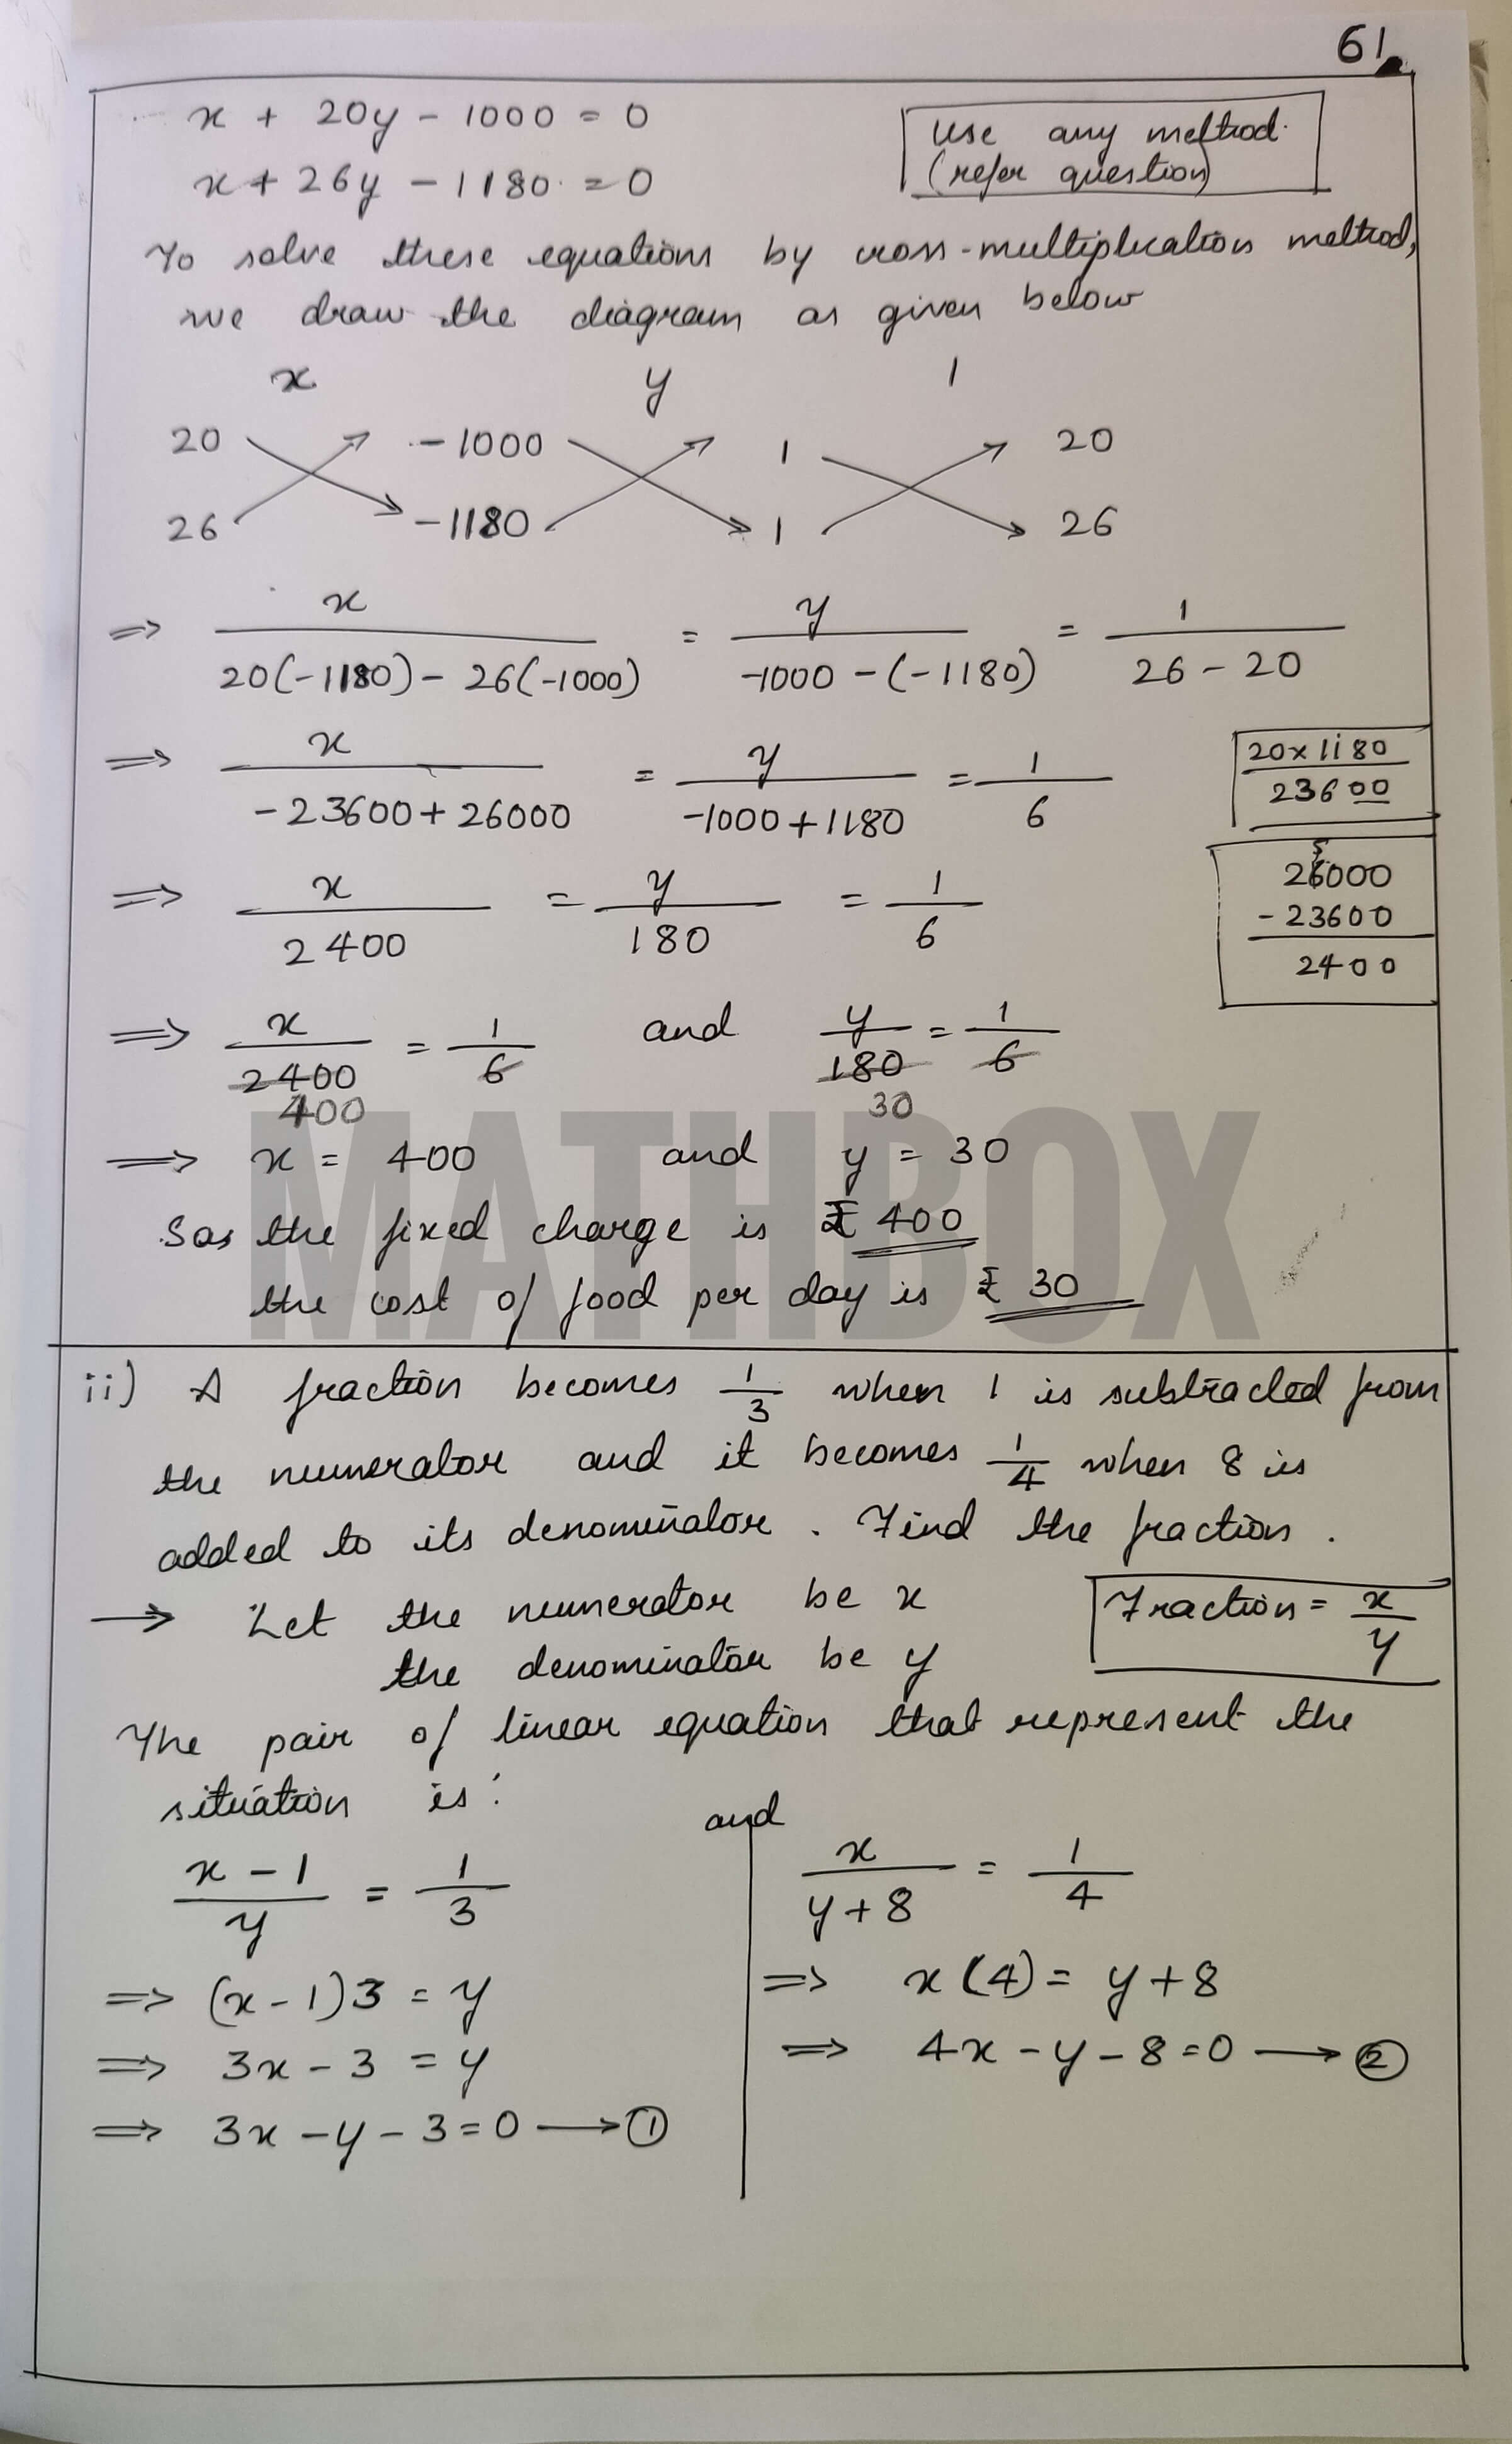 61
x + 20y - 1000 = 0
x + 26y - 1180 = 0
Use any method.
(refer question)
To solve these equations by cross-multiplication method,
we draw the diagram as given below
x y 1
20 -1000 1 20
26 -1180 1 26
⇒ x/(20(-1180) - 26(-1000)) = y/(-1000 - (-1180)) = 1/(26 - 20)
⇒ x/(-23600 + 26000) = y/(-1000 + 1180) = 1/6
20 x 1180
23600
⇒ x/2400 = y/180 = 1/6
5
26000
- 23600
2400
⇒ x/2400 = 1/6 and y/180 = 1/6
400 30
⇒ x = 400 and y = 30
So, the fixed charge is ₹ 400
the cost of food per day is ₹ 30
MATHBOX
ii) A fraction becomes 1/3 when 1 is subtracted from
the numerator and it becomes 1/4 when 8 is
added to its denominator. Find the fraction.
→ Let the numerator be x
the denominator be y
Fraction = x/y
The pair of linear equation that represent the
situation is:
and
(x - 1)/y = 1/3
⇒ (x - 1)3 = y
⇒ 3x - 3 = y
⇒ 3x - y - 3 = 0 → ①
x/(y + 8) = 1/4
⇒ x(4) = y + 8
⇒ 4x - y - 8 = 0 → ②